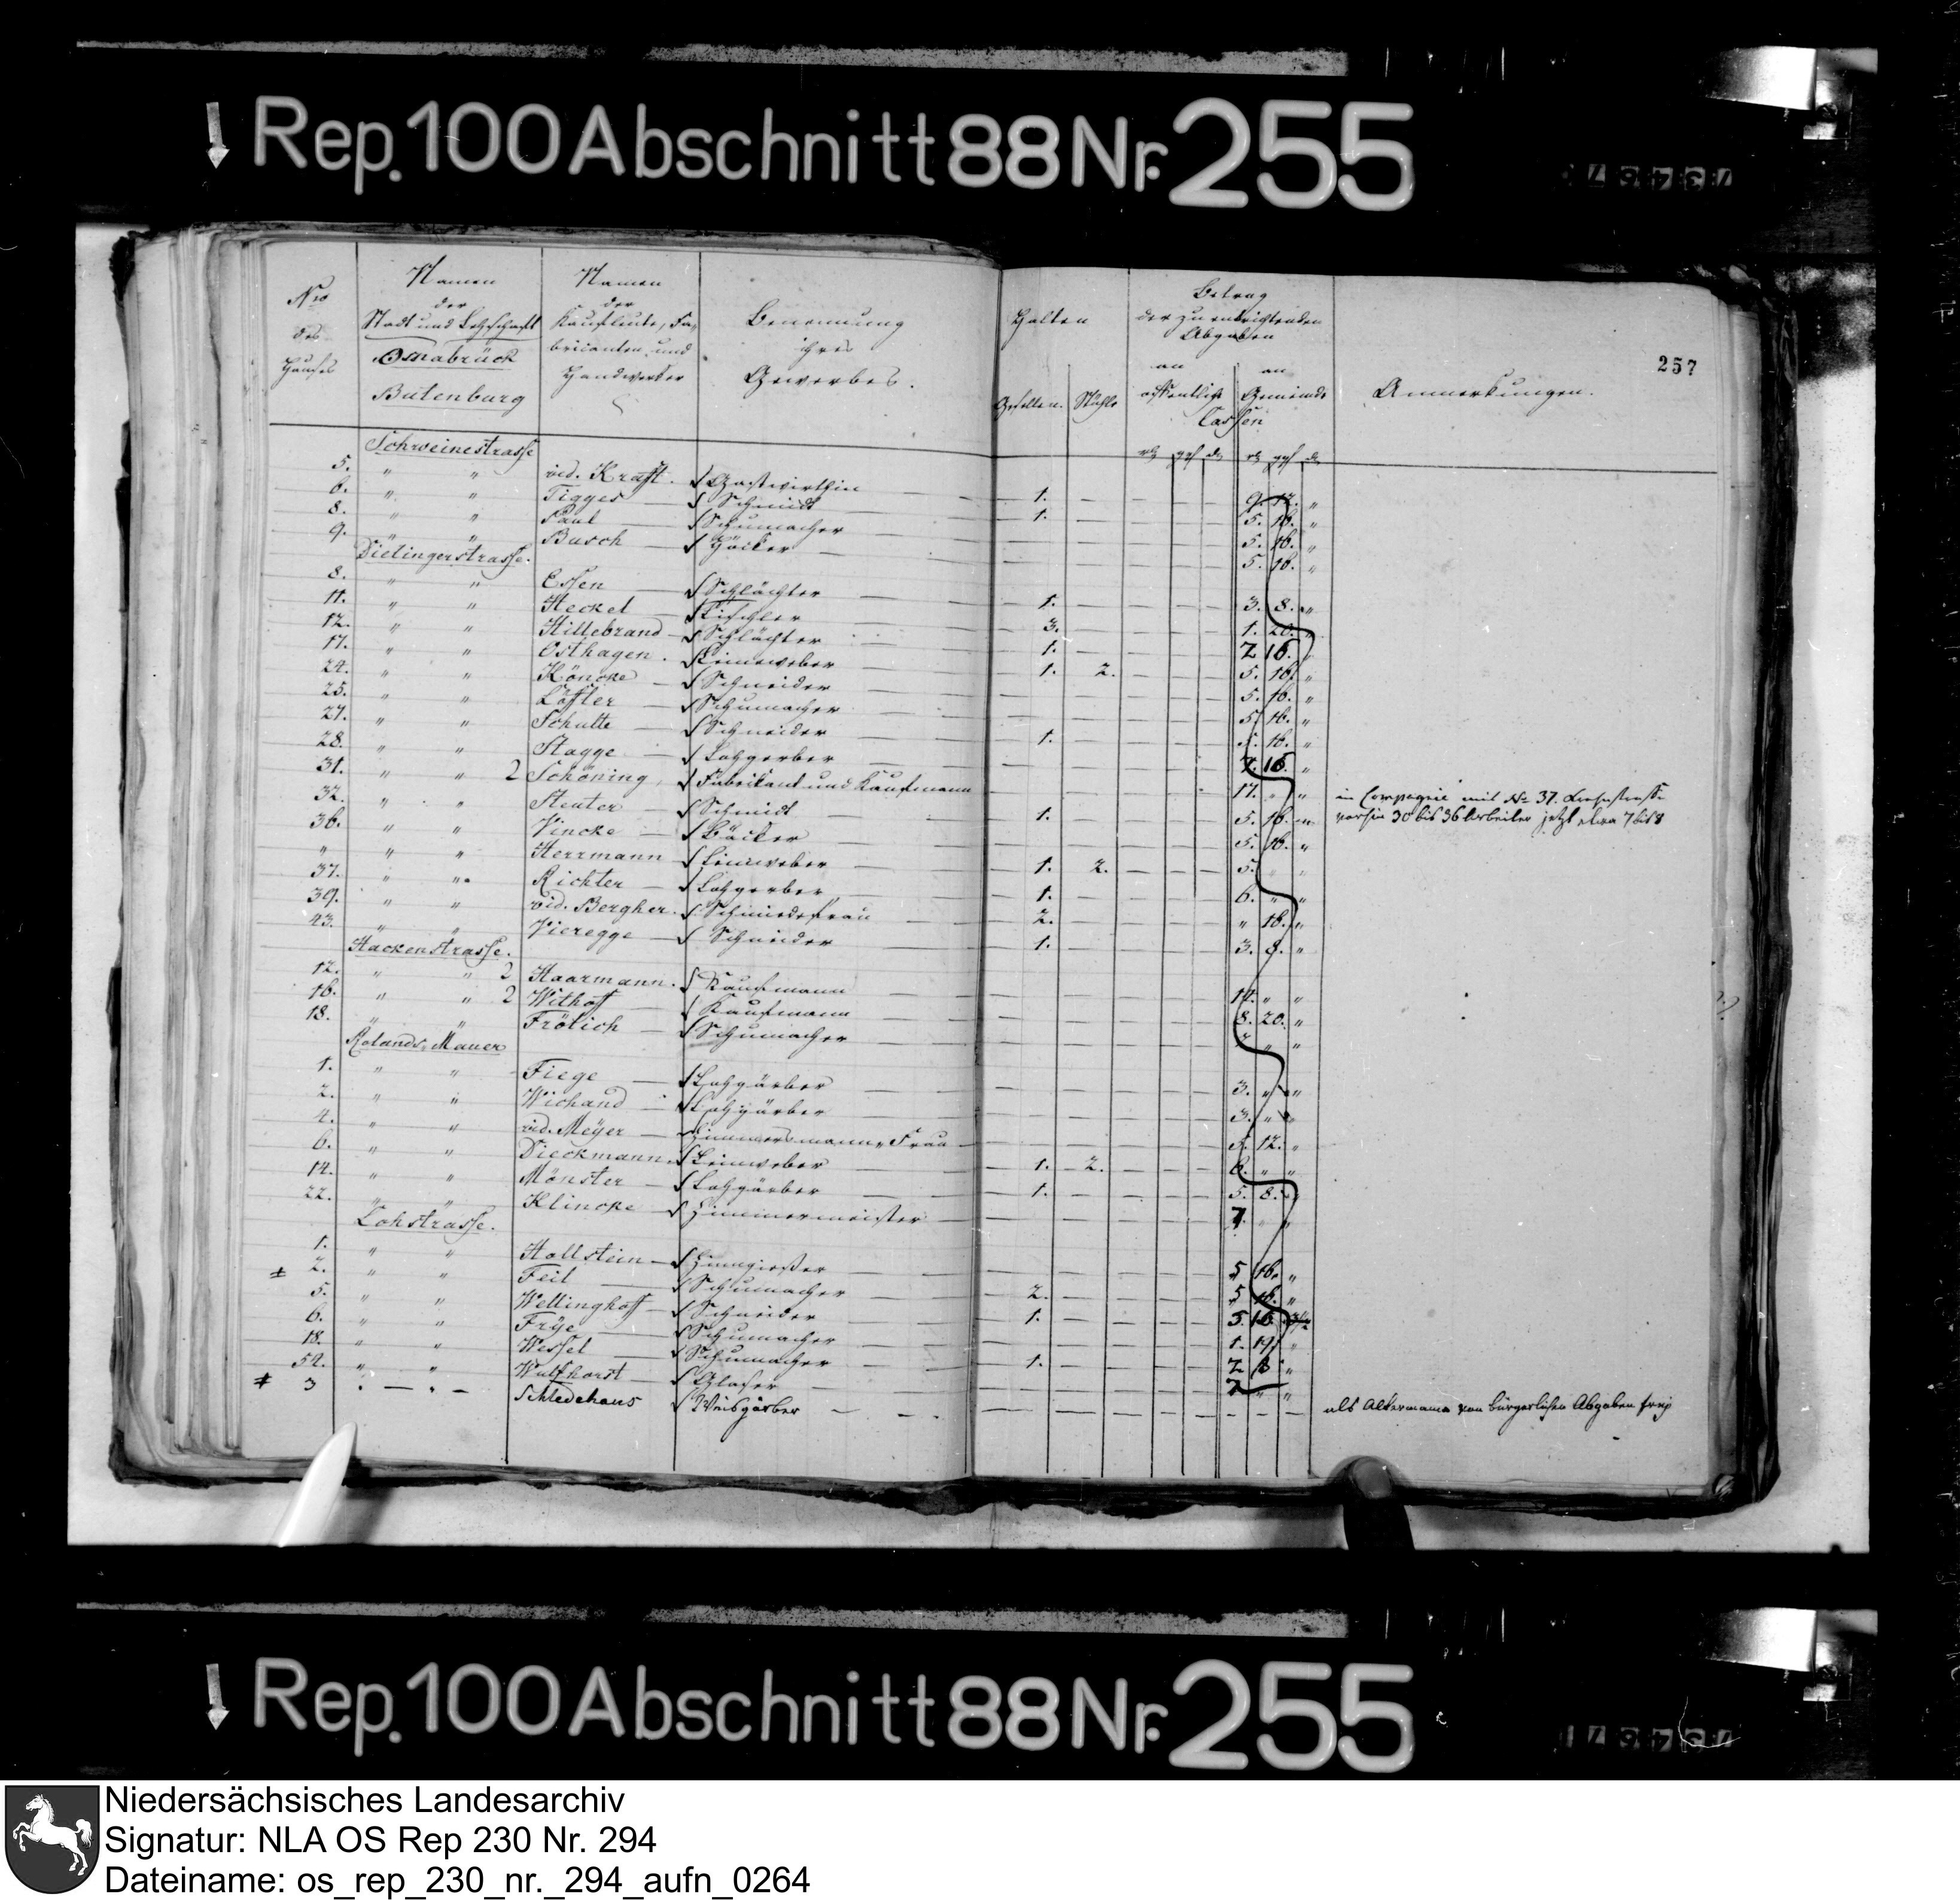 Rep. 100 Abschnitt 88 Nr. 255
257
Nro des Hauses
Namen der Stadt und Ortschaft Osnabrück Butenburg
Namen der Kaufleute, Fabricanten und Handwerker
Benennung ihres Gewerbes.
Halten Gesellen. Stühle
Betrag der zu entrichtenden Abgaben
an öffentliche an Gemeinde Cassen
Anmerkungen.
Schweinestrasse
5. " " vid. Krafft. Gastwirthin — 1. — 9. 12. "
6. " " Tigges Schmidt — 1. — 5. 16. "
8. " " Paul Schumacher — 5. 16. "
9. " " Busch — Höcker — 5. 16. "
Dielingerstrasse.
8. " " Essen — Schlächter — 1. — 3. 8. "
11. " " Heckel — Tischler — 3. — 1. 20. "
12. " " Hillebrand — Schlächter — 1. — 7 16. "
17. " " Osthagen. Leineweber — 1. 2. — 5. 16. "
24. " " Köncke — Schneider — 5. 16. "
25. " " Löffler — Schumacher — 5. 16. "
27. " " Schulte — Schneider — 1. — 5. 16. "
28. " " Stagge — Lohgerber — 7. 16. "
31. " " 2 Schöning, Fabrikant und Kaufmann 17. " " in Compagnie mit No 37. Krahnstrasse
vorhin 30 bis 36 Arbeiter jetzt etwa 7 bis 8
32. " " Stenter — Schmidt — 1. — 5. 16. "
36. " " Vincke — Bäcker — 5. 16. "
" " " Herrmann Leinweber — 1. 2. — 5. " "
37. " " Richter — Lohgerber — 1. — 6. " "
39. " " vid. Bergher. Schmiedefrau — 2. — " 16. "
43. " " Vieregge — Schneider — 1. — 3. 8. "
Hackenstrasse.
12. " " 2 Haarmann. Kaufmann — 17. " "
16. " " 2 Withoff Kaufmann — 8. 20. "
18. " " Frölich — Schumacher — " "
Rolands Mauer
1. " " Fiege — Lohgärber — 3. " "
2. " " Wichand — Lohgärber — 3. " "
4. " " vid. Meÿer — Zimmermanns Frau — 5. 12. "
6. " " Dieckmann. Leinweber — 1. 2. — 6. " "
14. " " Mönster — Lohgärber — 1. — 5. 8. "
22. " " Klincke — Zimmermeister — 7. " "
Lohstrasse.
1. " " Hollstein — Zinngießer — 5 16. "
2. " " Feil — Schumacher — 2. — 5 16. "
5. " " Wellinghoff — Schneider — 1. — 5. 16.
6. " " Frÿe — Schumacher — 1. 19. "
18. " " Wessel — Schumacher — 1. — 7 8 "
54. " " Wulfhorst — Glaser — 7 " "
# 3 . — . — Schledehaus Weisgärber — — als Altermann von bürgerlichen Abgaben freÿ
Rep. 100 Abschnitt 88 Nr. 255
Niedersächsisches Landesarchiv
Signatur: NLA OS Rep 230 Nr. 294
Dateiname: os_rep_230_nr._294_aufn_0264